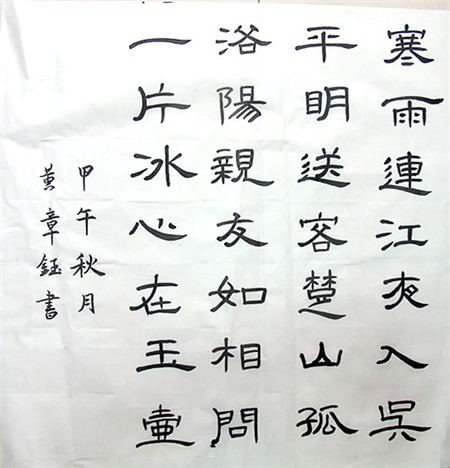 寒雨連江夜入吳
平明送客楚山孤
洛陽親友如相問
一片冰心在玉壺
甲午秋月
黃章鈺書